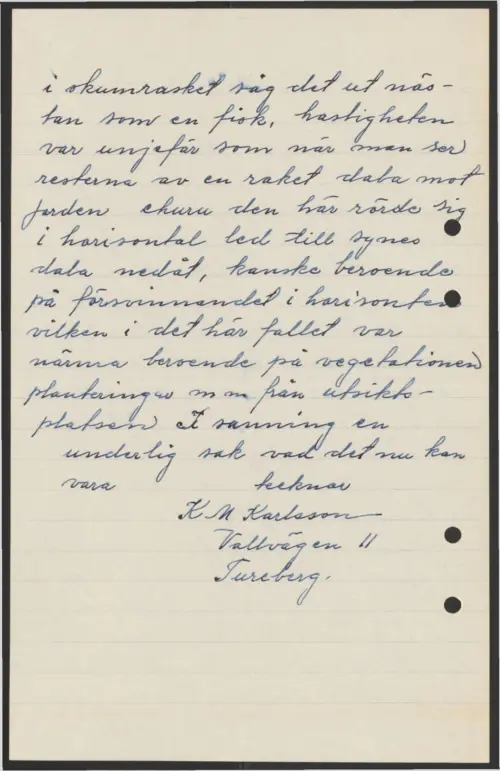 i skumrasket såg det ut näs-
tan som en fisk, hastigheten
var unjefär som när man ser
resterna av en raket dala mot
jorden churu den här rörde sig
i horisontal led till synes
dala nedåt, kanske beroende
på försvinnandet i horisonten
vilken i det här fallet var
närma beroende på vegetationen
planteringar m m från utsikts-
platsen I sanning en
underlig sak vad det nu kan
vara tecknar
K M Karlsson
Vallvägen 11
Tureberg.